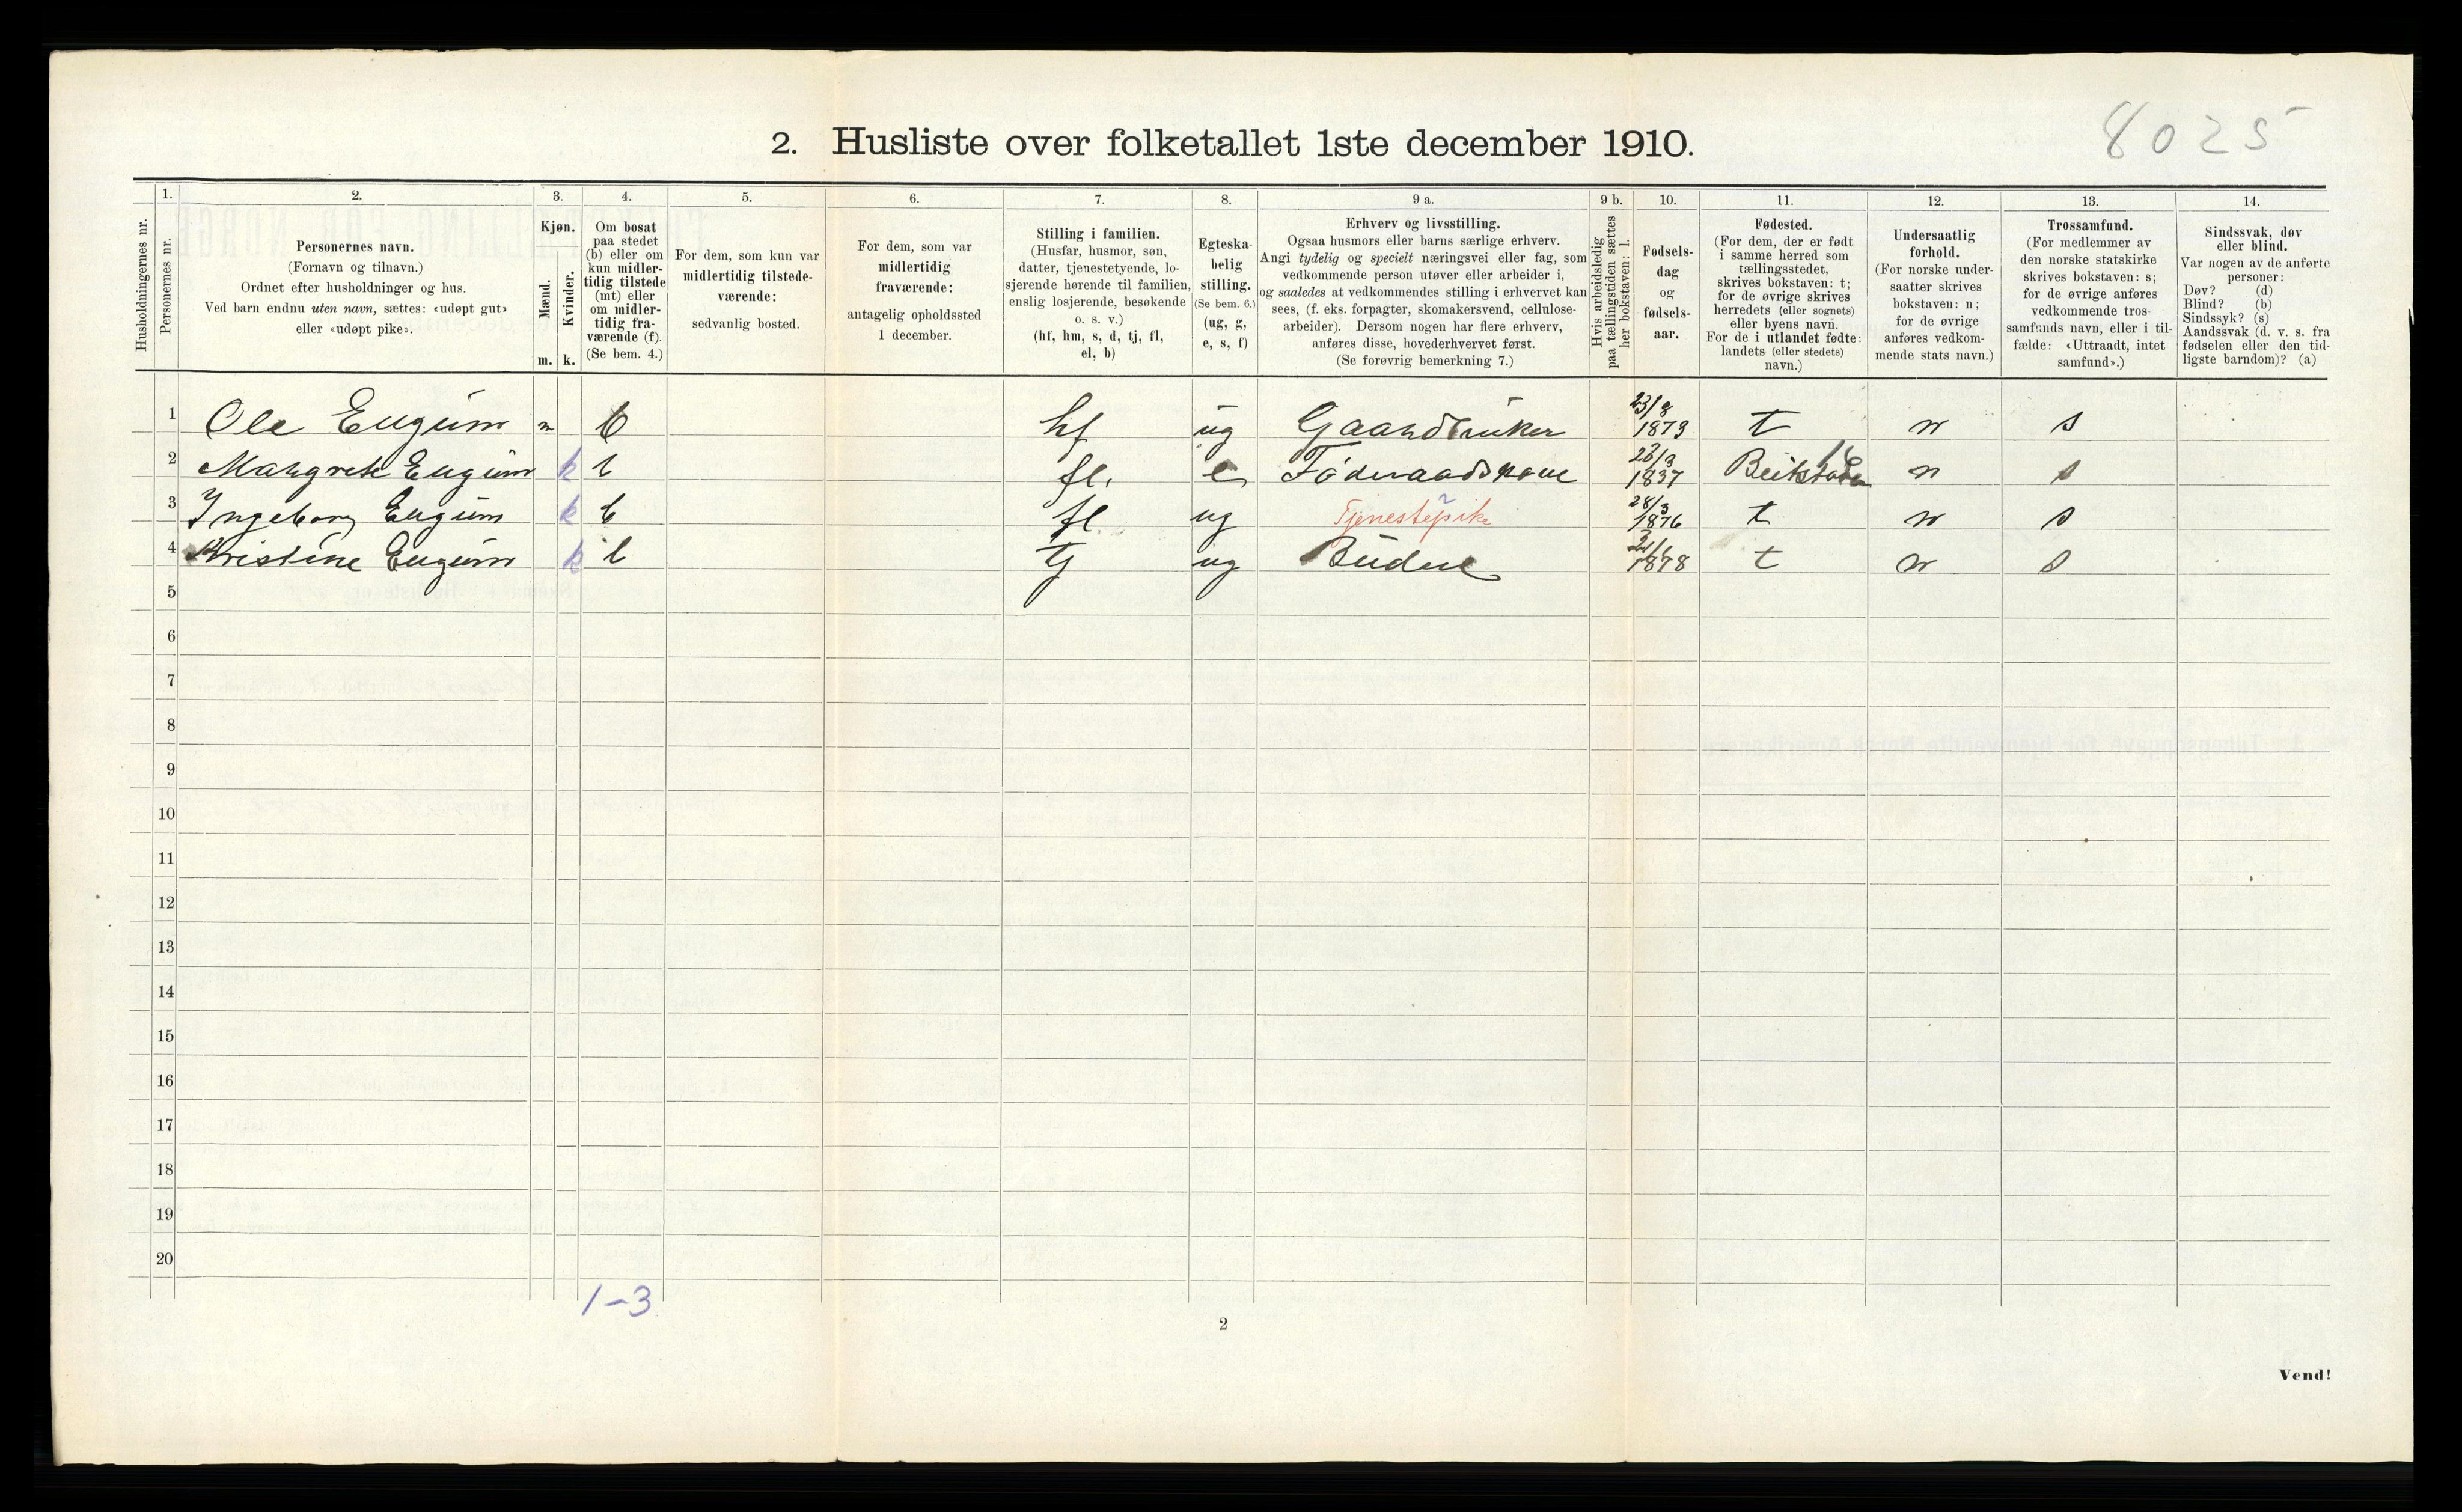 8025
2. Husliste over folketallet 1ste december 1910.
Husholdningernes nr.
1.
Personernes nr.
2.
Personernes navn.
(Fornavn og tilnavn.)
Ordnet efter husholdninger og hus.
Ved barn endnu uten navn, sættes: «udøpt gut»
eller «udøpt pike».
3.
Kjøn.
Mænd.
Kvinder.
m. k.
4.
Om bosat
paa stedet
(b) eller om
kun midler-
tidig tilstede
(mt) eller
om midler-
tidig fra-
værende (f).
(Se bem. 4.)
5.
For dem, som kun var
midlertidig tilstede-
værende:
sedvanlig bosted.
6.
For dem, som var
midlertidig
fraværende:
antagelig opholdssted
1 december.
7.
Stilling i familien.
(Husfar, husmor, søn,
datter, tjenestetyende, lo-
sjerende hørende til familien,
enslig losjerende, besøkende
o. s. v.)
(hf, hm, s, d, tj, fl,
el, b)
8.
Egteska-
belig
stilling.
(Se bem. 6.)
(ug, g,
e, s, f)
9 a.
Erhverv og livsstilling.
Ogsaa husmors eller barns særlige erhverv.
Angi tydelig og specielt næringsvei eller fag, som
vedkommende person utøver eller arbeider i,
og saaledes at vedkommendes stilling i erhvervet kan
sees, (f. eks. forpagter, skomakersvend, cellulose-
arbeider). Dersom nogen har flere erhverv,
anføres disse, hovederhvervet først.
(Se forøvrig bemerkning 7.)
9 b.
Hvis arbeidsledig
paa tællingstiden sættes
her bokstaven: l.
10.
Fødsels-
dag
og
fødsels-
aar.
11.
Fødested.
(For dem, der er født
i samme herred som
tællingsstedet,
skrives bokstaven: t;
for de øvrige skrives
herredets (eller sognets)
eller byens navn.
For de i utlandet fødte:
landets (eller stedets)
navn.)
12.
Undersaatlig
forhold.
(For norske under-
saatter skrives
bokstaven: n;
for de øvrige
anføres vedkom-
mende stats navn.)
13.
Trossamfund.
(For medlemmer av
den norske statskirke
skrives bokstaven: s;
for de øvrige anføres
vedkommende tros-
samfunds navn, eller i til-
fælde: «Uttraadt, intet
samfund».)
14.
Sindssvak, døv
eller blind.
Var nogen av de anførte
personer:
Døv? (d)
Blind? (b)
Sindssyk? (s)
Aandssvak (d. v. s. fra
fødselen eller den tid-
ligste barndom)? (a)
1 Ole Eugum m b hf ug Gaardbruker 23/8 1873 t n s
2 Margrete Eugum k b fl. e Føderaadskone 1837 Beitstaden n s
3 Ingeborg Eugum k b fl ug Tjenestepike 28/3 1876 t n s
4 Kristine Eugum k b tj ug Budeie 1878 t n s
5
6
7
8
9
10
11
12
13
14
15
16
17
18
19
20
1-3
2
Vend!